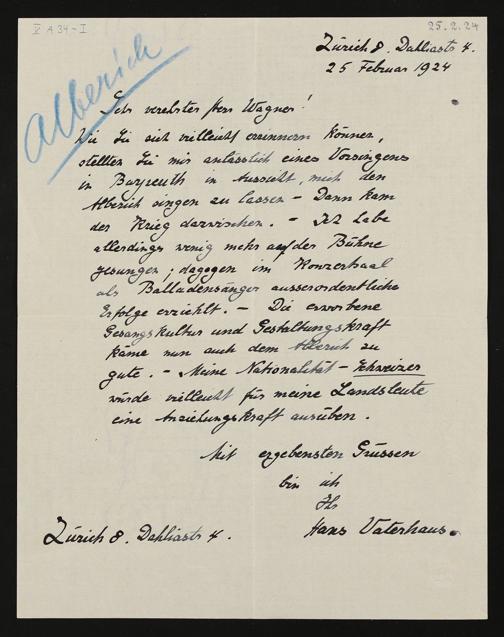 V A 34-I
25.2.24
Alberich
Zürich 8. Dahliastr 4.
25 Februar 1924
Sehr verehrter Herr Wagner!
Wie Sie sich vielleicht erinnern können,
stellten Sie mir anlässlich eines Vorsingens
in Bayreuth in Aussicht, mich den
Alberich singen zu lassen – Dann kam
der Krieg dazwischen. – Ich habe
allerdings wenig mehr auf der Bühne
gesungen; dagegen im Konzertsaal
als Balladensänger ausserordentliche
Erfolge erzielt. – Die erworbene
Gesangskultur und Gestaltungskraft
käme nun auch dem Alberich zu
gute. – Meine Nationalität – Schweizer
würde vielleicht für meine Landsleute
eine Anziehungskraft ausüben.
Mit ergebensten Grüssen
bin ich
Ihr
Hans Vaterhaus.
Zürich 8. Dahliastr 4.